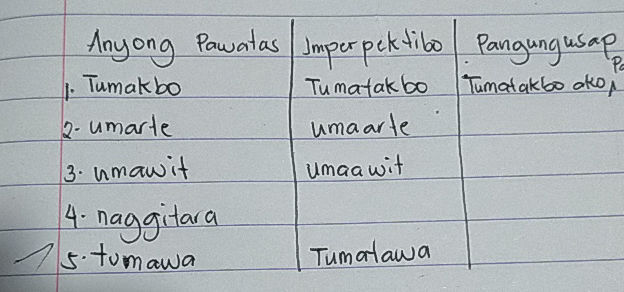 Anyong Pawatas Imperpektibo Pangungusap
1. Tumakbo Tumatakbo Tumatakbo ako,
2. umarte umaarte
3. umawit umaawit
4. naggitara
5. tumawa Tumatawa